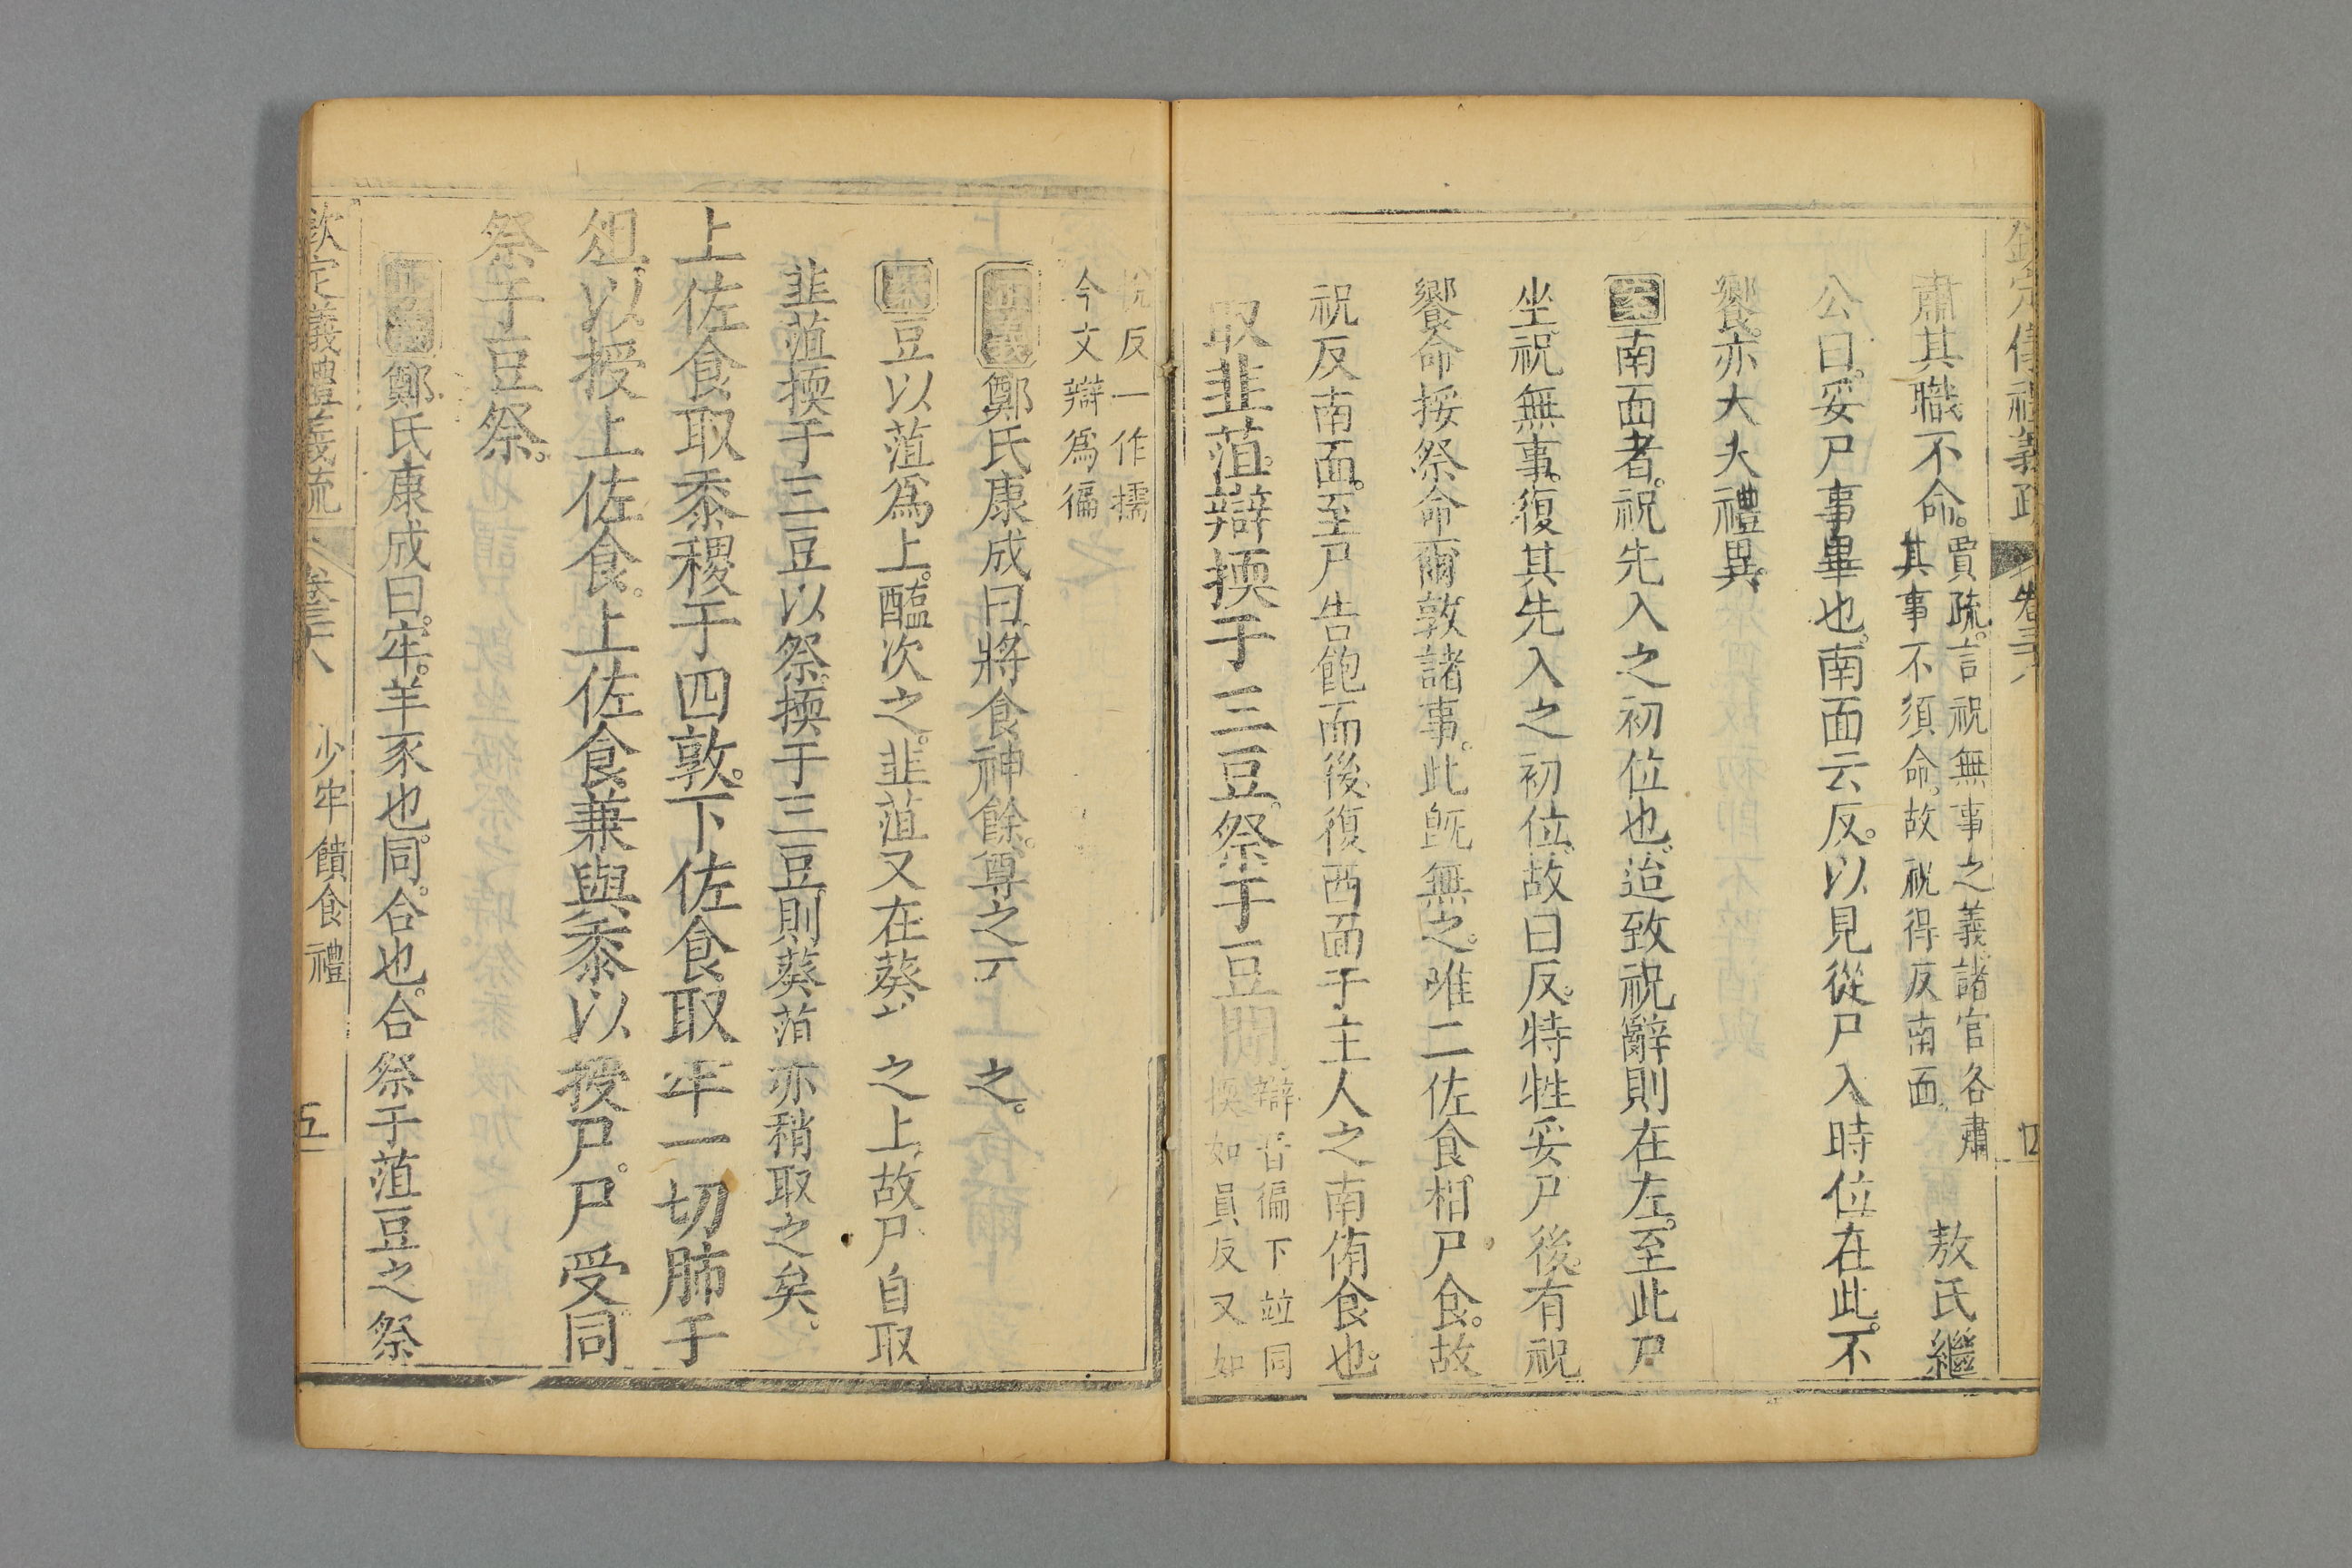 欽定儀禮義疏 卷三十八
肅其職不命。賈疏。言祝無事之義。諸官各肅其事不須命。故祝得反南面。 敖氏繼
公曰。妥尸事畢也。南面云反。以見從尸入時位在此。不
饗。亦大夫禮異。
案南面者。祝先入之初位也。迨致祝辭則在左。至此尸
坐。祝無事。復其先入之初位。故曰反。特牲妥尸後。有祝
饗命挼祭命爾敦諸事。此旣無之。唯二佐食。相尸食。故
祝反南面。至尸告飽而後。復西面于主人之南侑食也。
取韭菹。辯擩于三豆。祭于豆閒。辯音徧下竝同擩如員反又如
悅反一作擩今文辯爲徧
正義鄭氏康成曰。將食神餘。尊之 之。
案豆以菹爲上。醢次之。韭菹又在葵 之上。故尸自取
韭菹擩于三豆以祭。擩于三豆。則葵菹亦稍取之矣。
上佐食取黍稷于四敦。下佐食取牢一切肺于
俎。以授上佐食。上佐食兼與黍以授尸。尸受。同
祭于豆祭。
正義鄭氏康成曰。牢。羊豕也。同。合也。合祭于菹豆之祭
欽定儀禮義疏 卷三十八 少牢饋食禮 五